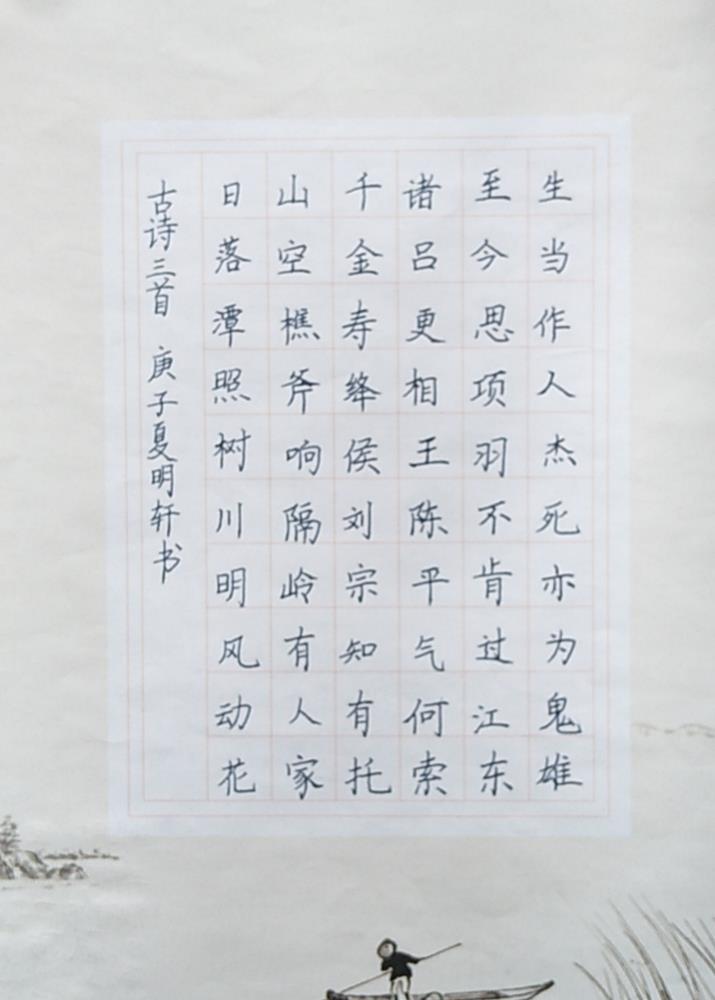 生当作人杰死亦为鬼雄
至今思项羽不肯过江东
诸吕更相王陈平气何索
千金寿绛侯刘宗知有托
山空樵斧响隔岭有人家
日落潭照树川明风动花
古诗三首 庚子夏明轩书